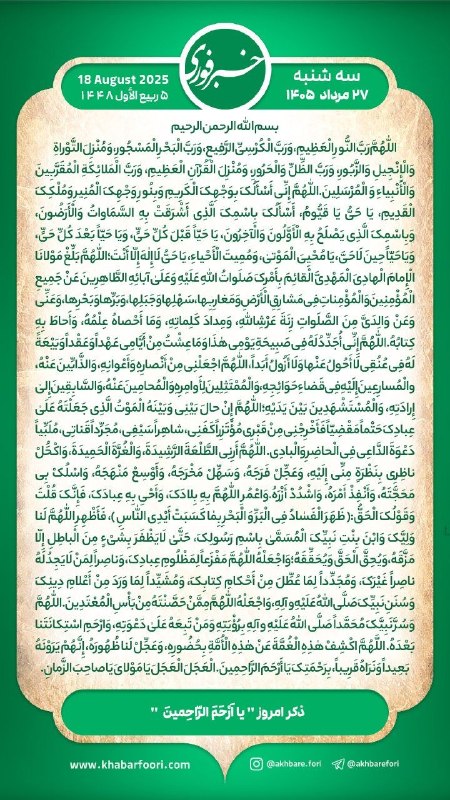 خبرفوری
سه شنبه
۲۷ مرداد ۱۴۰۵
18 August 2025
۵ ربیع الأول ۱۴۴۸
بسم الله الرحمن الرحیم
اَللّهُمَّ رَبَّ النُّورِ الْعَظیمِ، وَرَبَّ الْکُرْسِیِّ الرَّفیعِ، وَرَبَّ الْبَحْرِ الْمَسْجُورِ، وَمُنْزِلَ التَّوْراةِ
وَالْإِنْجیلِ وَالزَّبُورِ، وَرَبَّ الظِّلِّ وَالْحَرُورِ، وَمُنْزِلَ الْقُرْآنِ الْعَظیمِ، وَرَبَّ الْمَلائِکَةِ الْمُقَرَّبینَ
وَالْأَنْبِیاءِ وَالْمُرْسَلینَ، اللّهُمَّ إِنِّی أَسْأَلُکَ بِوَجْهِکَ الْکَرِیمِ وَبِنُورِ وَجْهِکَ الْمُنِیرِ وَمُلْکِکَ
الْقَدِیمِ، یَا حَیُّ یَا قَیُّومُ، أَسْأَلُکَ بِاسْمِکَ الَّذِی أَشْرَقَتْ بِهِ السَّمَاوَاتُ وَالْأَرَضُونَ،
وَبِاسْمِکَ الَّذِی یَصْلَحُ بِهِ الْأَوَّلُونَ وَالْآخِرُونَ، یَا حَیّاً قَبْلَ کُلِّ حَیٍّ، وَیَا حَیّاً بَعْدَ کُلِّ حَیٍّ،
وَیَا حَیّاً حِینَ لَا حَیَّ، یَا مُحْیِیَ الْمَوْتىٰ، وَمُمِیتَ الْأَحْیاءِ، یَا حَیُّ لَا إِلٰهَ إِلّا أَنْتَ؛ اللّٰهُمَّ بَلِّغْ مَوْلانَا
الْإِمامَ الْهادِیَ الْمَهْدِیَّ الْقائِمَ بِأَمْرِکَ صَلَواتُ اللّهِ عَلَیْهِ وَعَلَىٰ آبائِهِ الطَّاهِرِینَ عَنْ جَمِیعِ
الْمُؤْمِنِینَ وَالْمُؤْمِناتِ فِی مَشارِقِ الْأَرْضِ وَمَغارِبِها، سَهْلِها وَجَبَلِها، وَبَرِّها وَبَحْرِها، وَعَنِّی
وَعَنْ وَالِدَیَّ مِنَ الصَّلَواتِ زِنَةَ عَرْشِ اللهِ، وَمِدادَ کَلِماتِهِ، وَمَا أَحْصاهُ عِلْمُهُ، وَأَحاطَ بِهِ
کِتابُهُ. اللّهُمَّ إِنِّی أُجَدِّدُ لَهُ فِی صَبِیحَةِ یَوْمِی هٰذَا وَمَا عِشْتُ مِنْ أَیَّامِی عَهْداً وَعَقْداً وَبَیْعَةً
لَهُ فِی عُنُقِی لَا أَحُولُ عَنْها وَلَا أَزُولُ أَبَداً. اللّهُمَّ اجْعَلْنِی مِنْ أَنْصارِهِ وَأَعْوانِهِ، وَالذَّابِّینَ عَنْهُ،
وَالْمُسارِعِینَ إِلَیْهِ فِی قَضاءِ حَوَائِجِهِ، وَالْمُمْتَثِلِینَ لِأَوامِرِهِ وَالْمُحامِینَ عَنْهُ، وَالسَّابِقِینَ إِلىٰ
إِرَادَتِهِ، وَالْمُسْتَشْهَدِینَ بَیْنَ یَدَیْهِ؛ اللّهُمَّ إِنْ حالَ بَیْنِی وَبَیْنَهُ الْمَوْتُ الَّذِی جَعَلْتَهُ عَلَىٰ
عِبادِکَ حَتْماً مَقْضِیّاً فَأَخْرِجْنِی مِنْ قَبْرِی مُؤْتَزِراً کَفَنِی، شاهِراً سَیْفِی، مُجَرِّداً قَناتِی، مُلَبِّیاً
دَعْوَةَ الدَّاعِی فِی الْحاضِرِ وَالْبادِی. اللّهُمَّ أَرِنِی الطَّلْعَةَ الرَّشِیدَةَ، وَالْغُرَّةَ الْحَمِیدَةَ، وَاکْحُلْ
ناظِرِی بِنَظْرَةٍ مِنِّی إِلَیْهِ، وَعَجِّلْ فَرَجَهُ، وَسَهِّلْ مَخْرَجَهُ، وَأَوْسِعْ مَنْهَجَهُ، وَاسْلُکْ بِی
مَحَجَّتَهُ، وَأَنْفِذْ أَمْرَهُ، وَاشْدُدْ أَزْرَهُ. وَاعْمُرِ اللّهُمَّ بِهِ بِلادَکَ، وَأَحْیِ بِهِ عِبادَکَ، فَإِنَّکَ قُلْتَ
وَقَوْلُکَ الْحَقُّ: ( ظَهَرَ الْفَسَادُ فِی الْبَرِّ وَ الْبَحْرِ بِمَا کَسَبَتْ أَیْدِی النَّاسِ )، فَأَظْهِرِ اللّهُمَّ لَنا
وَلِیَّکَ وَابْنَ بِنْتِ نَبِیِّکَ الْمُسَمَّىٰ بِاسْمِ رَسُولِکَ، حَتَّىٰ لَا یَظْفَرَ بِشَیْءٍ مِنَ الْباطِلِ إِلّا
مَزَّقَهُ، وَیُحِقَّ الْحَقَّ وَیُحَقِّقَهُ؛ وَاجْعَلْهُ اللّهُمَّ مَفْزَعاً لِمَظْلُومِ عِبادِکَ، وَناصِراً لِمَنْ لَا یَجِدُ لَهُ
ناصِراً غَیْرَکَ، وَمُجَدِّداً لِمَا عُطِّلَ مِنْ أَحْکامِ کِتابِکَ، وَمُشَیِّداً لِمَا وَرَدَ مِنْ أَعْلامِ دِینِکَ
وَسُنَنِ نَبِیِّکَ صَلَّى اللّٰهُ عَلَیْهِ وَآلِهِ، وَاجْعَلْهُ اللّٰهُمَّ مِمَّنْ حَصَّنْتَهُ مِنْ بَأْسِ الْمُعْتَدِینَ. اللّٰهُمَّ
وَسُرَّ نَبِیَّکَ مُحَمَّداً صَلَّى اللّٰهُ عَلَیْهِ وَآلِهِ بِرُؤْیَتِهِ وَمَنْ تَبِعَهُ عَلَىٰ دَعْوَتِهِ، وَارْحَمِ اسْتِکانَتَنا
بَعْدَهُ. اللّٰهُمَّ اکْشِفْ هٰذِهِ الْغُمَّةَ عَنْ هٰذِهِ الْأُمَّةِ بِحُضُورِهِ، وَعَجِّلْ لَنا ظُهُورَهُ، إِنَّهُمْ یَرَوْنَهُ
بَعِیداً وَنَرَاهُ قَرِیباً، بِرَحْمَتِکَ یَا أَرْحَمَ الرَّاحِمِینَ. الْعَجَلَ الْعَجَلَ یَا مَوْلایَ یَا صاحِبَ الزَّمانِ.
ذکر امروز " یا اَرْحَمَ الرّاحِمینَ "
www.khabarfoori.com
@akhbare.fori
@akhbarefori